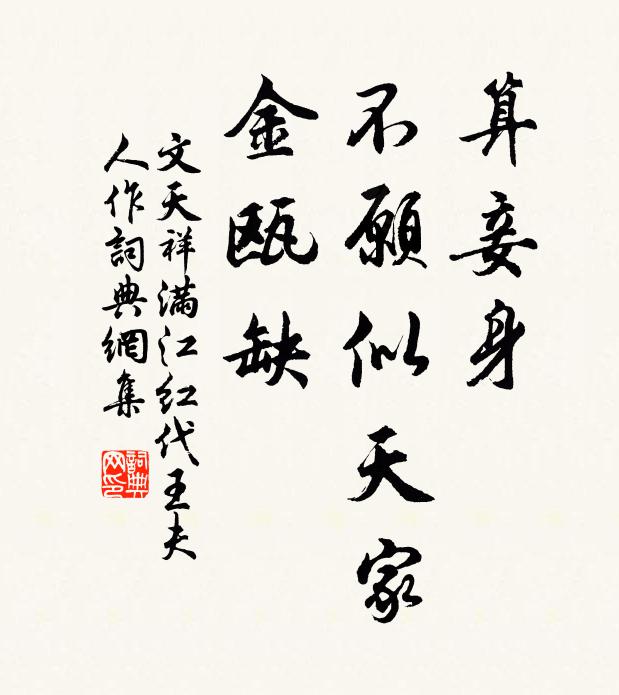 算妾身
不願似天家
金瓯缺
文天祥满江红代王夫
人作詞典網集
詞典
网印